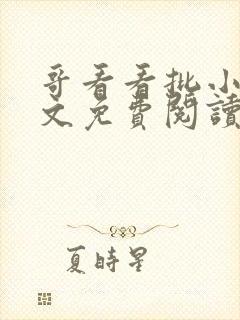 哥看看批小
文免費閱讀
夏時星